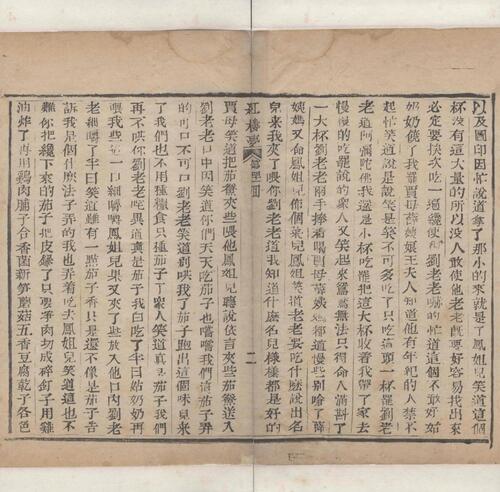 以及圖印因忙說道拿了那小的來就是了鳳姐兒笑道這個
杯沒有這大量的所以沒人敢使他老老既要好容易找出來
必定要挨次吃一遍纔使得劉老老嚇的忙道這個不敢好姑
奶奶饒了我罷賈母薛姨媽王夫人知道他有年紀的人禁不
起忙笑道說是說笑是笑不可多吃了只吃這頭一杯罷劉老
老道阿彌陀佛我還是小杯吃罷把這大杯收着我帶了家去
慢慢的吃罷說的衆人又笑起來鴛鴦無法只得命人滿斟了
一大杯劉老老兩手捧着喝賈母薛姨媽都道慢些別嗆了薛
姨媽又命鳳姐兒佈個菜兒鳳姐笑道老老要吃什麽說出名
兒來我夾了喂你劉老老道我知道什麽名兒樣樣都是好的
紅樓夢 回 二
賈母笑道把茄鯗夾些喂他鳳姐兒聽說依言夾些茄鯗送入
劉老老口中因笑道你們天天吃茄子也嚐嚐我們這茄子弄
的可口不可口劉老老笑道別哄我了茄子跑出這個味兒來
了我們也不用種糧食只種茄子了衆人笑道真是茄子我們
再不哄你劉老老咤異道真是茄子我白吃了半日姑奶奶再
喂我些這一口細嚼嚼鳳姐兒果又夾了些放入他口內劉老
老細嚼了半日笑道雖有一點茄子香只是還不像是茄子告
訴我是個什麽法子弄的我也弄着吃去鳳姐兒笑道這也不
難你把纔下來的茄子把皮了只要淨肉切成碎釘子用雞
油炸了再用鷄肉脯子合香菌新笋蘑菇五香豆腐乾子各色